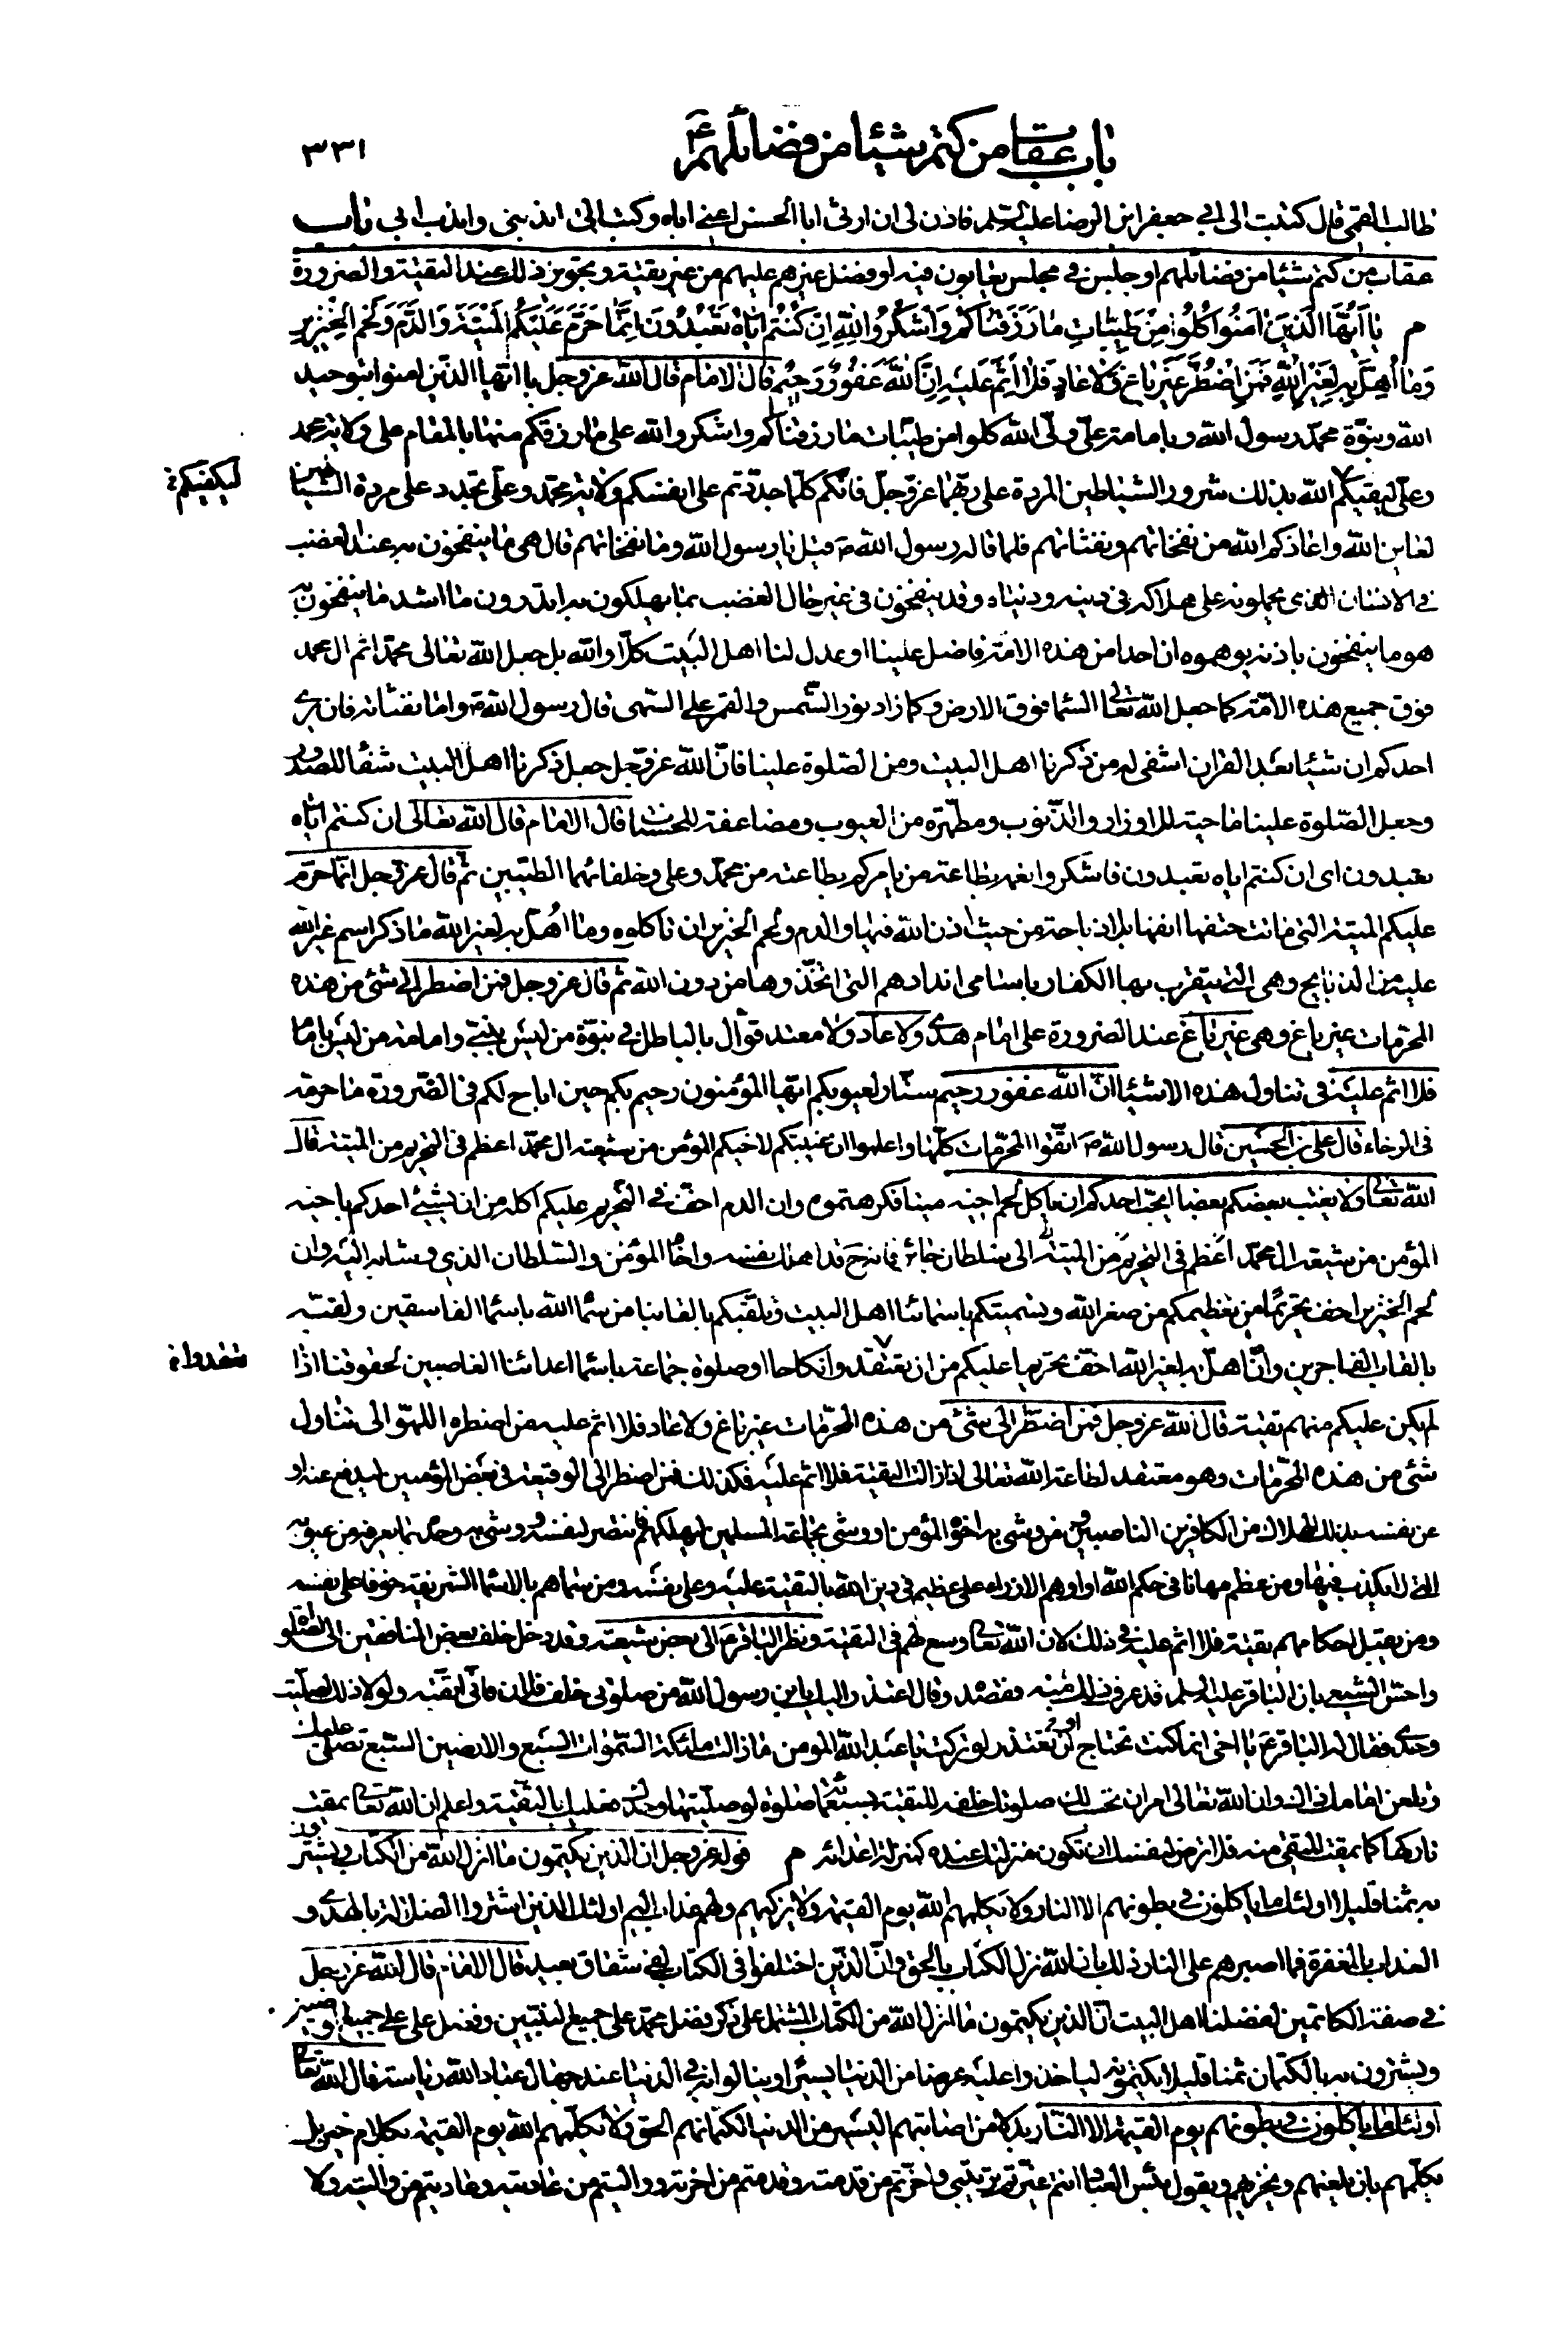 باب عقاب من كتم شيئا من فضائلهم ع
٣٣١
طالب القمي قال كتبت الى ابي جعفر ابن الرضا عليه السلم فاذن لي ان ارثي ابا الحسن اعني اباه وكتب الي اندبني واندب ابي باب
عقاب من كتم شيئا من فضائلهم او جلس في مجلس يعابون فيه او فضل غيرهم عليهم من غير تقية وتجويز ذلك عند التقية والضرورة
م يا أيها الذين آمنوا كلوا من طيبات ما رزقناكم واشكروا لله ان كنتم اياه تعبدون انما حرم عليكم الميتة والدم ولحم الخنزير
وما أهل به لغير الله فمن اضطر غير باغ ولا عاد فلا اثم عليه ان الله غفور رحيم قال الامام قال الله عز وجل يا ايها الذين امنوا بتوحيد
الله وبنبوة محمد رسول الله وبامامة علي ولي الله كلوا من طيبات ما رزقناكم واشكروا لله على ما رزقكم منها بالمقام على ولاية محمد
وعلي ليقيكم الله بذلك شرور الشياطين المردة على ربها عز وجل فانكم كلما جددتم على انفسكم ولاية محمد وعلي تجدد على مردة الشياطين
ليكفيكم خ
لعاين الله واعاذكم الله من نفخاتهم ونفثاتهم فلما قاله رسول الله ص قيل يا رسول الله وما نفخاتهم قال هي ما ينفخون به عند الغضب
في الانسان الذي يحملونه على هلاكه في دينه ودنياه وقد ينفخون في غير حال الغضب بما يهلكون به اتدرون ما اشد ما ينفخون به
هو ما ينفخون باذنه يوهموه ان احدا من هذه الامة فاضل علينا او عدل لنا اهل البيت كلا والله بل جعل الله تعالى محمدا ثم ال محمد
فوق جميع هذه الامة كما جعل الله تعالى السماء فوق الارض وكما زاد نور الشمس والقمر على السهى قال رسول الله ص واما نفثاته فان يرى
احدكم ان شيئا بعد القران اشفى له من ذكرنا اهل البيت ومن الصلوة علينا فان الله عز وجل جعل ذكرنا اهل البيت شفاء للصدور
وجعل الصلوة علينا ماحية للاوزار والذنوب ومطهرة من العيوب ومضاعفة للحسنات قال الامام قال الله تعالى ان كنتم اياه
تعبدون اى ان كنتم اياه تعبدون فاشكروا نعمه بطاعة من يامركم بطاعته من محمد وعلي وخلفائهما الطيبين ثم قال عز وجل انما حرم
عليكم الميتة التي ماتت حتف انفها بلا ذباحة من حيث اذن الله فيها والدم ولحم الخنزير ان تاكلوه وما اهل به لغير الله ما ذكر اسم غير الله
عليه من الذبايح وهي التي يتقرب بها الكفار باسامي اندادهم التي اتخذوها من دون الله ثم قال عز وجل فمن اضطر الى شئ من هذه
المحرمات غير باغ وهي غير باغ عند الضرورة على امام هدى ولا عاد ولا معتد قوال بالباطل في نبوة من ليس بنبي وامامة من ليس بامام
فلا اثم عليه في تناول هذه الاشياء ان الله غفور رحيم ستار لعيوبكم ايها المؤمنون رحيم بكم حين اباح لكم في الضرورة ما حرمه
في الرخاء قال علي بن الحسين قال رسول الله ص اتقوا المحرمات كلها واعلموا ان غيبتكم لاخيكم المؤمن من شيعة ال محمد اعظم في التحريم من الميتة قال
الله تعالى ولا يغتب بعضكم بعضا ايحب احدكم ان ياكل لحم اخيه ميتا فكرهتموه وان الدم اخف في التحريم عليكم اكله من ان يشئ احدكم باخيه
المؤمن من شيعة ال محمد الى سلطان جائر فانه ح قد اهلك نفسه واخاه المؤمن والسلطان الذي وشى به اليه وان
لحم الخنزير اخف تحريما من تعظيمكم من صغر الله وتسميتكم باسمائنا اهل البيت وتلقبكم بالقابنا من سماه الله باسماء الفاسقين ولقبه
بالقاب الفاجرين وان ما اهل به لغير الله اخف تحريما عليكم من ان تعتقدوا نكاحا او صلوة جماعة باسماء اعدائنا الغاصبين لحقوقنا اذا
تعقدوا خ
لم يكن عليكم منهم تقية قال الله عز وجل فمن اضطر الى شئ من هذه المحرمات غير باغ ولا عاد فلا اثم عليه من اضطره اللهو الى تناول
شئ من هذه المحرمات وهو معتقد لطاعة الله تعالى اذا زالت التقية فلا اثم عليه فكذلك فمن اضطر الى الوقيعة في بعض المؤمنين ليدفع عنه او
عن نفسه بذلك الهلاك من الكافرين الناصبين ومن وشى به اخوه المؤمن او وشى بجماعة المسلمين ليهلكهم فانتصر لنفسه ووشى به وحده بما يعرفه من عيوبه
التي لا يكذب فيها ومن عظم مهانا في حكم الله او اوهم الازراء على عظيم في دين الله بالتقية عليه وعلى نفسه ومن سماهم بالاسماء الشريفة خوفا على نفسه
ومن تقبل احكامهم تقية فلا اثم عليه في ذلك لان الله تعالى وسع لهم في التقية ونظر الباقر ع الى بعض شيعته وقد دخل خلف بعض المنافقين الى الصلوة
واحس الشيعي بان الباقر عليه السلم قد عرف ذلك منه فقصده وقال اعتذر اليك يابن رسول الله من صلوتي خلف فلان فاني اتقيه ولولا ذلك لصليت
وحدي فقال له الباقر ع يا اخي انما كنت تحتاج ان تعتذر لو تركت يا عبد الله المؤمن ما زالت ملئكة السموات السبع والارضين السبع تصلي عليك
وتلعن امامك ذاك وان الله تعالى امر ان تحسب لك صلوتك خلفه للتقية بسبعمائة صلوة لو صليتها وحدك فعليك بالتقية واعلم ان الله تعالى يمقت
تاركها كما يمقت المتقي منه فلا ترض لنفسك ان تكون منزلتك عنده كمنزلة اعدائه م قوله عز وجل ان الذين يكتمون ما انزل الله من الكتاب ويشترون
به ثمنا قليلا اولئك ما ياكلون في بطونهم الا النار ولا يكلمهم الله يوم القيمة ولا يزكيهم ولهم عذاب اليم اولئك الذين اشتروا الضلالة بالهدى و
العذاب بالمغفرة فما اصبرهم على النار ذلك بان الله نزل الكتاب بالحق وان الذين اختلفوا في الكتاب لفي شقاق بعيد قال الامام قال الله عز وجل
في صفة الكاتمين لفضلنا اهل البيت ان الذين يكتمون ما انزل الله من الكتاب المشتمل على ذكر فضل محمد على جميع النبيين وفضل علي على جميع الوصيين
ويشترون به بالكتمان ثمنا قليلا يكتمونه لياخذوا عليه عرضا من الدنيا يسيرا وينالوا به في الدنيا عند جهال عباد الله رياسة قال الله تعالى
اولئك ما ياكلون في بطونهم يوم القيمة الا النار بدلا من اصابتهم اليسير من الدنيا لكتمانهم الحق ولا يكلمهم الله يوم القيمة بكلام خير بل
يكلمهم بان يلعنهم ويخزيهم ويقول بئس العباد انتم غيرتم ترتيبي واخرتم من قدمته وقدمتم من اخرته وواليتم من عاديته وعاديتم من واليته ولا